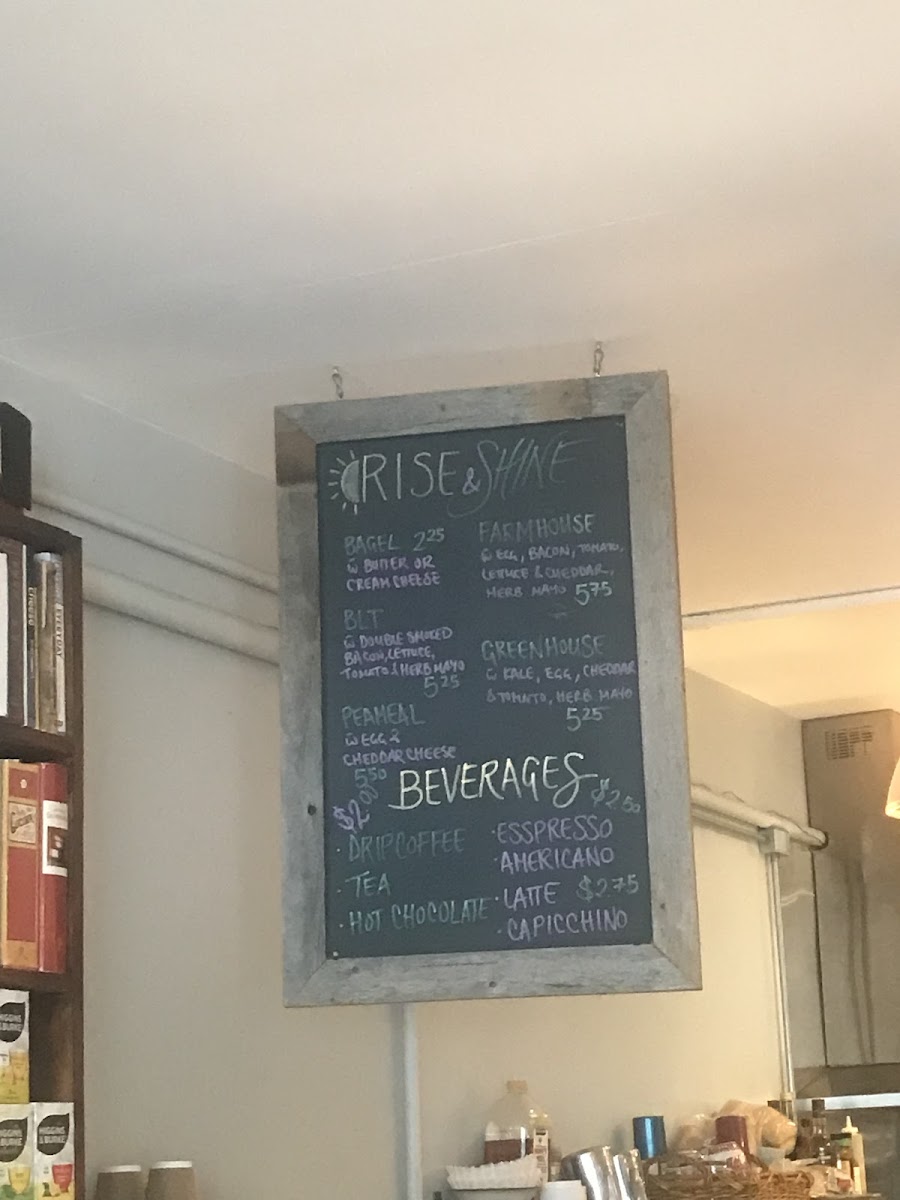 RISE & SHINE
BAGEL 2.25
w BUTTER OR
CREAM CHEESE
BLT
w DOUBLE SMOKED
BACON, LETTUCE,
TOMATO & HERB MAYO
5.25
PEAMEAL
w EGG &
CHEDDAR CHEESE
5.50
FARMHOUSE
w EGG, BACON, TOMATO,
LETTUCE & CHEDDAR,
HERB MAYO 5.75
GREENHOUSE
w KALE, EGG, CHEDDAR
& TOMATO, HERB MAYO
5.25
BEVERAGES
$2.00
· DRIP COFFEE
· TEA
· HOT CHOCOLATE
$2.50
· ESSPRESSO
· AMERICANO
· LATTE $2.75
· CAPICCHINO
HIGGINS
& BURKE
HIGGINS
& BURKE